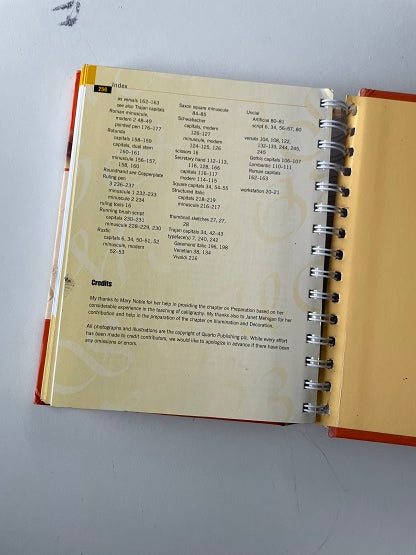 256 Index
as versals 162–163
see also Trajan capitals
Roman minuscule,
modern 2 48–49
pointed pen 176–177
Rotunda
capitals 158–159
capitals, dual stem
160–161
minuscule 156–157,
158, 160
Roundhand see Copperplate
Ruling pen
3 236–237
minuscule 1 232–233
minuscule 2 234
ruling lines 16
Running brush script
capitals 230–231
minuscule 228–229, 230
Rustic
capitals 6, 34, 50–51, 52
minuscule, modern
52–53
Saxon square minuscule
84–85
Schwabacher
capitals, modern
126–127
minuscule, modern
124–125, 126
scissors 16
Secretary hand 112–113,
116, 128, 166
capitals 116–117
modern 114–115
Square capitals 34, 54–55
Structured Italic
capitals 218–219
minuscule 216–217
thumbnail sketches 27, 27,
28
Trajan capitals 34, 42–43
typeface(s) 7, 240, 242
Garamond Italic 196, 198
Venetian 38, 134
Vivaldi 216
Uncial
Artificial 80–81
script 6, 34, 56–57, 80
versals 104, 108, 122,
132–133, 244, 246,
249
Gothic capitals 106–107
Lombardic 110–111
Roman capitals
162–163
workstation 20–21
Credits
My thanks to Mary Noble for her help in providing the chapter on Preparation based on her
considerable experience in the teaching of calligraphy. My thanks also to Janet Mehigan for her
contribution and help in the preparation of the chapter on Illumination and Decoration.
All photographs and illustrations are the copyright of Quarto Publishing plc. While every effort
has been made to credit contributors, we would like to apologize in advance if there have been
any omissions or errors.